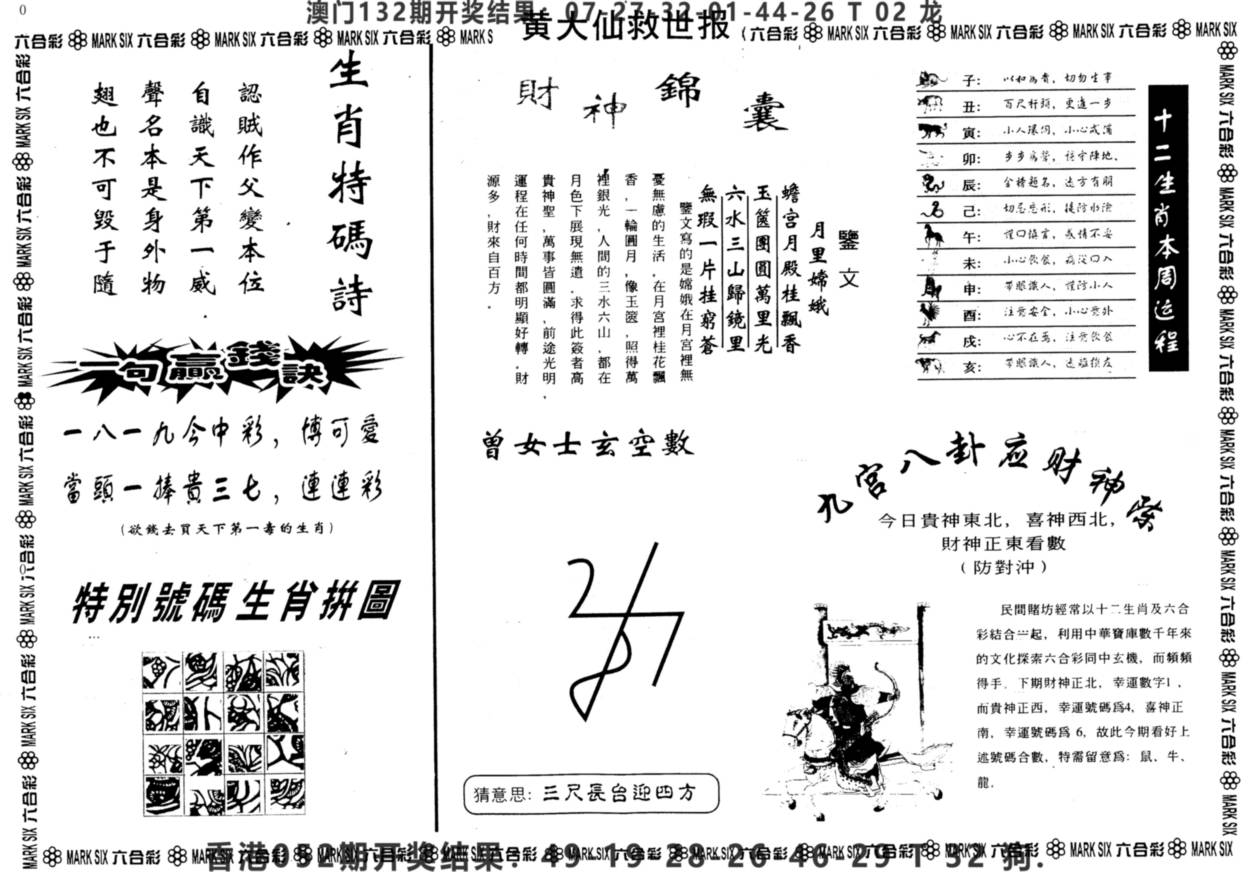 0
澳门132期开奖结果: 07-27-32-01-44-26 T 02 龙
黄大仙救世报
六合彩 MARK SIX 六合彩 MARK SIX 六合彩 MARK SIX 六合彩 MARK S
六合彩 MARK SIX 六合彩 MARK SIX 六合彩 MARK SIX 六合彩 MARK SIX
生肖特碼詩
認賊作父變本位
自識天下第一威
聲名本是身外物
翅也不可毀于隨
一句贏錢訣
一八一九今中彩，博可愛
當頭一捧貴三七，連連彩
(欲錢去買天下第一毒的生肖)
特別號碼生肖拼圖
財神錦囊
鑒文
月里嫦娥
蟾宮月殿桂飄香
玉篋團圓萬里光
六水三山歸鏡里
無瑕一片挂窮蒼
鑒文寫的是嫦娥在月宮裡無
憂無慮的生活，在月宮裡桂花飄
香，一輪圓月，像玉篋，照得萬
裡銀光，人間的三水六山，都在
月色下展現無遺，求得此簽者高
貴神聖，萬事皆圓滿，前途光明，
運程在任何時間都明顯好轉，財
源多，財來自百方．
曾女士玄空數
猜意思: 三尺長台迎四方
十二生肖本周运程
子: 以和為貴，切勿生事
丑: 百尺杆頭，更進一步
寅: 小人環伺，小心式濤
卯: 步步為營，謹守陣地、
辰: 金榜題名，遠方有朋
己: 切忌忘形，提防水險
午: 謹口慎言，感情不妥
未: 小心飲食，病從口入
申: 帶眼識人，謹防小人
酉: 注意安全，小心意外
戌: 心不在焉，注意飲食
亥: 帶眼識人，遠離損友
九宮八卦应财神榮
今日貴神東北，喜神西北，
財神正東看數
（防對沖）
民間賭坊經常以十二生肖及六合
彩結合一起，利用中華寶庫數千年來
的文化探索六合彩同中玄機，而頻頻
得手．下期財神正北，幸運數字1，
而貴神正西，幸運號碼爲4，喜神正
南，幸運號碼爲 6，故此今期看好上
述號碼合數，特需留意爲: 鼠、牛、
龍．
MARK SIX 六合彩 MARK SIX 六合彩
香港052期开奖结果: 49-19-28-26-46-29 T 32 狗.